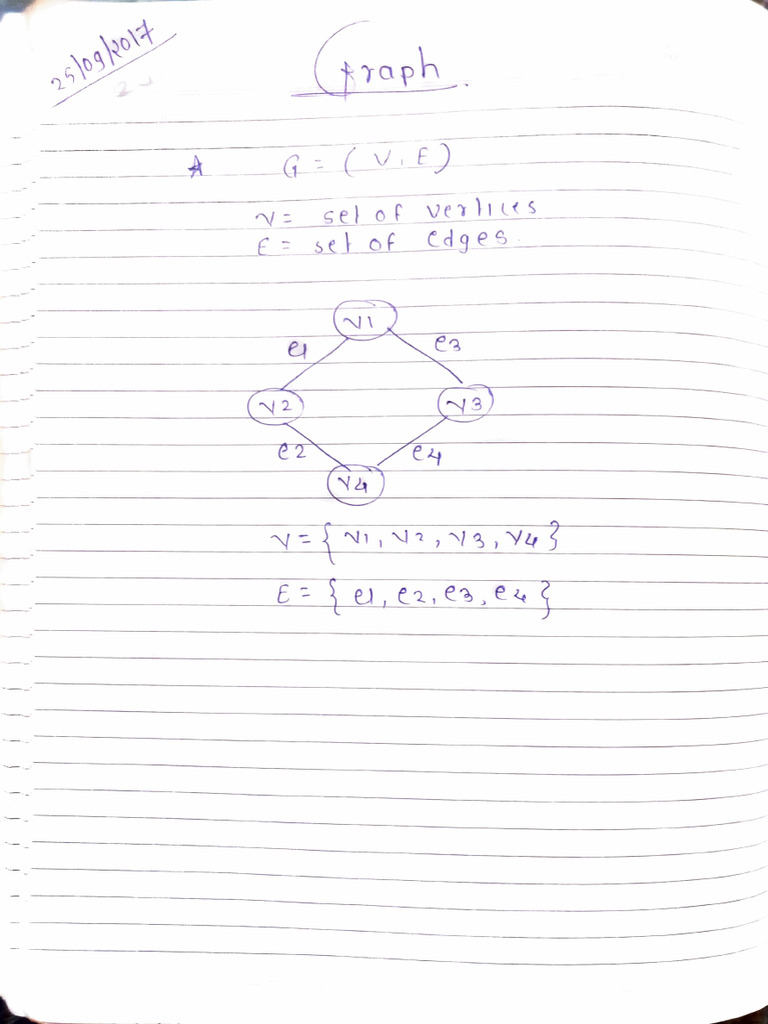 25/09/2017
Graph.
G = (V, E)
V = set of vertices
E = set of edges.
v1
e1 e3
v2 v3
e2 e4
v4
V = { v1, v2, v3, v4 }
E = { e1, e2, e3, e4 }